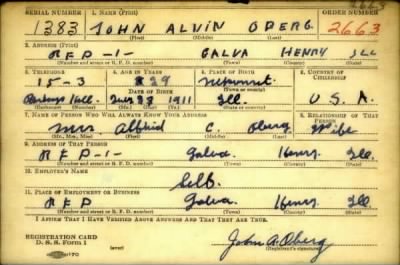 SERIAL NUMBER 1. NAME (Print) ORDER NUMBER
1383 JOHN ALVIN OBERG 2663
(First) (Middle) (Last)
2. ADDRESS (Print)
RFD-1- GALVA HENRY ILL
(Number and street or R. F. D. number) (Town) (County) (State)
3. TELEPHONE 4. AGE IN YEARS 5. PLACE OF BIRTH 6. COUNTRY OF CITIZENSHIP
15-3 29
DATE OF BIRTH (Town or county)
1911 Ill. U.S.A.
(Exchange) (Number) (Mo.) (Day) (Yr.) (State or country)
7. NAME OF PERSON WHO WILL ALWAYS KNOW YOUR ADDRESS 8. RELATIONSHIP OF THAT PERSON
Mrs. C. Oberg Wife
(Mr., Mrs., Miss) (First) (Middle) (Last)
9. ADDRESS OF THAT PERSON
RFD-1- Galva Henry Ill.
(Number and street or R. F. D. number) (Town) (County) (State)
10. EMPLOYER'S NAME
Self.
11. PLACE OF EMPLOYMENT OR BUSINESS
RFD Galva Henry Ill
(Number and street or R. F. D. number) (Town) (County) (State)
I AFFIRM THAT I HAVE VERIFIED ABOVE ANSWERS AND THAT THEY ARE TRUE.
REGISTRATION CARD
D. S. S. Form 1 (over) John A. Oberg
(Registrant's signature)